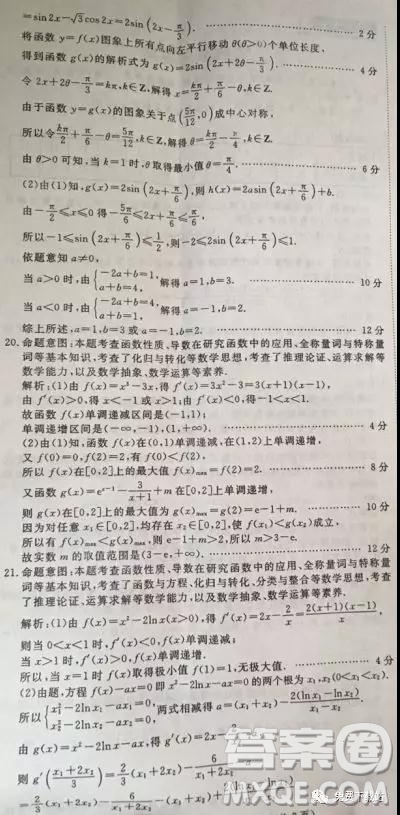 =sin 2x-√3cos 2x=2sin(2x-π/3). …… 2分
将函数 y=f(x)图象上所有点向左平行移动 θ(θ>0)个单位长度,
得到函数 g(x)的解析式为 g(x)=2sin(2x+2θ-π/3). …… 4分
令 2x+2θ-π/3=kπ,k∈Z,解得 x=kπ/2+π/6-θ,k∈Z.
由于函数 y=g(x)的图象关于点(5π/12,0)成中心对称,
所以令kπ/2+π/6-θ=5π/12,k∈Z,解得 θ=kπ/2-π/4,k∈Z.
由 θ>0 可知,当 k=1 时,θ取得最小值 θ=π/4. …… 6分
(2)由(1)知,g(x)=2sin(2x+π/6),则 h(x)=2asin(2x+π/6)+b.
由-π/2≤x≤0 得-5π/6≤2x+π/6≤π/6,
所以-1≤sin(2x+π/6)≤1/2,则-2≤2sin(2x+π/6)≤1.
依题意知 a≠0,
当 a>0 时,由{-2a+b=1, a+b=4, 解得 a=1,b=3. …… 10分
当 a<0 时,由{-2a+b=4, a+b=1, 解得 a=-1,b=2.
综上所述,a=1,b=3 或 a=-1,b=2. …… 12分
20. 命题意图:本题考查函数性质、导数在研究函数中的应用、全称量词与特称量
词等基本知识,考查了化归与转化等数学思想,考查了推理论证、运算求解等
数学能力,以及数学抽象、数学运算等素养.
解析:(1)由 f(x)=x³-3x,得 f′(x)=3x²-3=3(x+1)(x-1),
由 f′(x)>0,得 x<-1 或 x>1;由 f′(x)<0,得-1<x<1.
故函数 f(x)单调递减区间是(-1,1);
单调递增区间是(-∞,-1),(1,+∞). …… 4分
(2)由(1)知,函数 f(x)在(0,1)单调递减,在(1,2)上单调递增,
又 f(0)=0,f(2)=2,有 f(0)<f(2),
所以 f(x)在[0,2]上的最大值 f(x)max=f(2)=2. …… 8分
又函数 g(x)=eˣ⁻¹-3/(x+1)+m 在[0,2]上单调递增,
则 g(x)在[0,2]上的最大值为 g(x)max=g(2)=e-1+m. …… 10分
因为对任意 x₁∈[0,2],均存在 x₂∈[0,2],使 f(x₁)<g(x₂)成立,
所以有 f(x)max<g(x)max,则 e-1+m>2,所以 m>3-e.
故实数 m 的取值范围是(3-e,+∞). …… 12分
21. 命题意图:本题考查函数性质、导数在研究函数中的应用、全称量词与特称量
词等基本知识,考查了函数与方程、化归与转化、分类与整合等数学思想,考查
了推理论证、运算求解等数学能力,以及数学抽象、数学运算等素养.
解析:(1)由 f(x)=x²-2ln x(x>0),得 f′(x)=2x-2/x=2(x+1)(x-1)/x,
则当 0<x<1 时,f′(x)<0,f(x)单调递减;
当 x>1 时,f′(x)>0,f(x)单调递增.
所以,当 x=1 时 f(x)取得极小值 f(1)=1,无极大值. …… 4分
(2)由题,方程 f(x)-ax=0 即 x²-2ln x-ax=0 的两个根为 x₁,x₂(0<x₁<x₂).
所以{x₁²-2ln x₁-ax₁=0, x₂²-2ln x₂-ax₂=0, 两式相减得 a=(x₁+x₂)-2(ln x₁-ln x₂)/(x₁-x₂).
由 g(x)=x²-2ln x-ax,得 g′(x)=2x-
则 g′((x₁+2x₂)/3)=2/3(x₁+2x₂)-6/(x₁+2x₂)
=2/3(x₁+2x₂)-6/(x₁+2x₂)-(x₁+x₂)+2(ln x₁-ln x₂)
答案圈